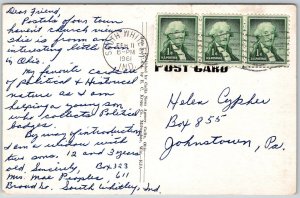 Dear Friend,
Postals of our town
haven't church views
She is from an
interesting little
in Ohio.
My favorite cards are
of Political & Historical
nature as I am
helping a young son
who collects Political
badges.
By way of introduction
I am a widow with
two sons. 12 and 3 years
old. Sincerely, Box 323
Mrs. Mae Peoples 611
Broad St. South Whitley, Ind.
SOUTH WHITLEY
FEB 11
6-PM
1961
IND.
POST CARD
Helen Cypher
Box 855
Johnstown, Pa.